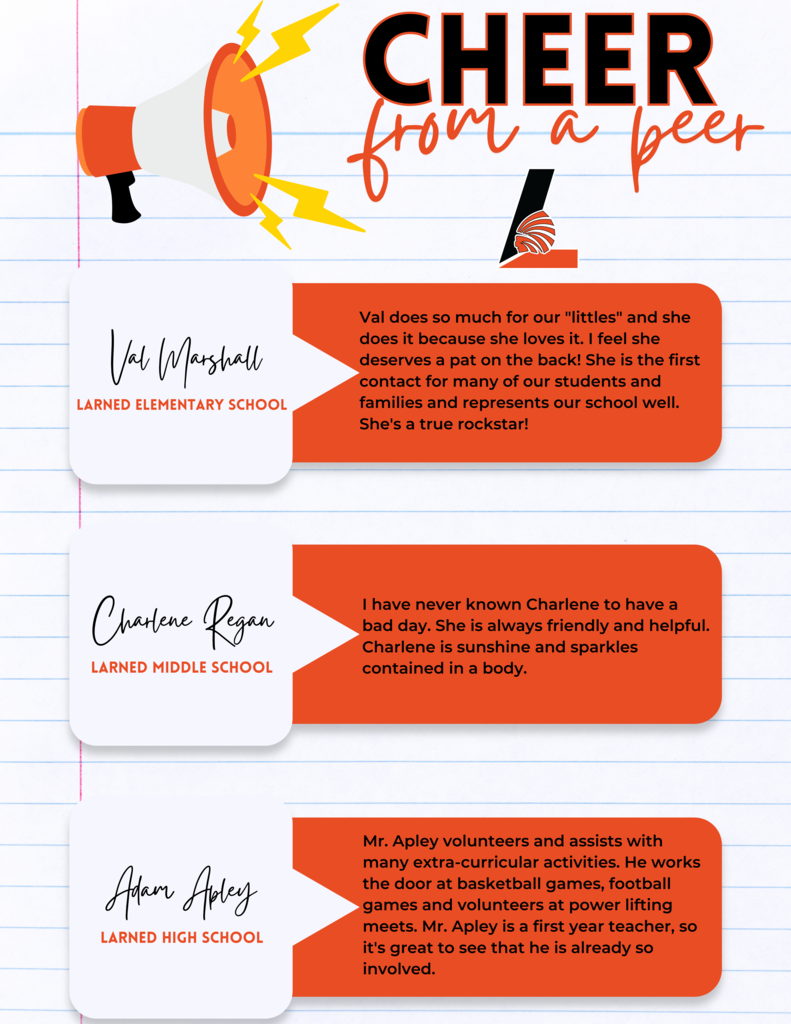 CHEER
from a peer
L
Val Marshall
LARNED ELEMENTARY SCHOOL
Val does so much for our "littles" and she
does it because she loves it. I feel she
deserves a pat on the back! She is the first
contact for many of our students and
families and represents our school well.
She's a true rockstar!
Charlene Regan
LARNED MIDDLE SCHOOL
I have never known Charlene to have a
bad day. She is always friendly and helpful.
Charlene is sunshine and sparkles
contained in a body.
Adam Apley
LARNED HIGH SCHOOL
Mr. Apley volunteers and assists with
many extra-curricular activities. He works
the door at basketball games, football
games and volunteers at power lifting
meets. Mr. Apley is a first year teacher, so
it's great to see that he is already so
involved.